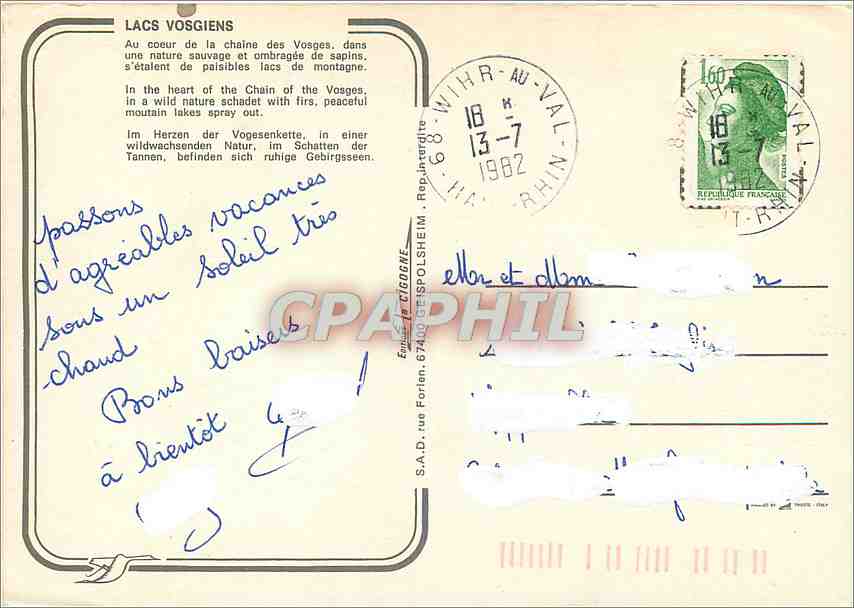 LACS VOSGIENS
Au coeur de la chaîne des Vosges, dans
une nature sauvage et ombragée de sapins,
s'étalent de paisibles lacs de montagne.
In the heart of the Chain of the Vosges,
in a wild nature schadet with firs, peaceful
moutain lakes spray out.
Im Herzen der Vogesenkette, in einer
wildwachsenden Natur, im Schatten der
Tannen, befinden sich ruhige Gebirgsseen.
passons
d'agréables vacances
sous un soleil très
chaud
Bons baisers
à bientôt
S.A.D. rue Forlen. 67400 GEISPOLSHEIM - Rep. interdite
Editions la CIGOGNE
68 - WIHR-AU-VAL -
18 H
13-7
1982
RHIN
1,60
POSTES
REPUBLIQUE FRANÇAISE
WIHR AU-VAL
18
13-7
1982
T-RHIN
Mr et Mm
CPAPHIL
TRIESTE - ITALY